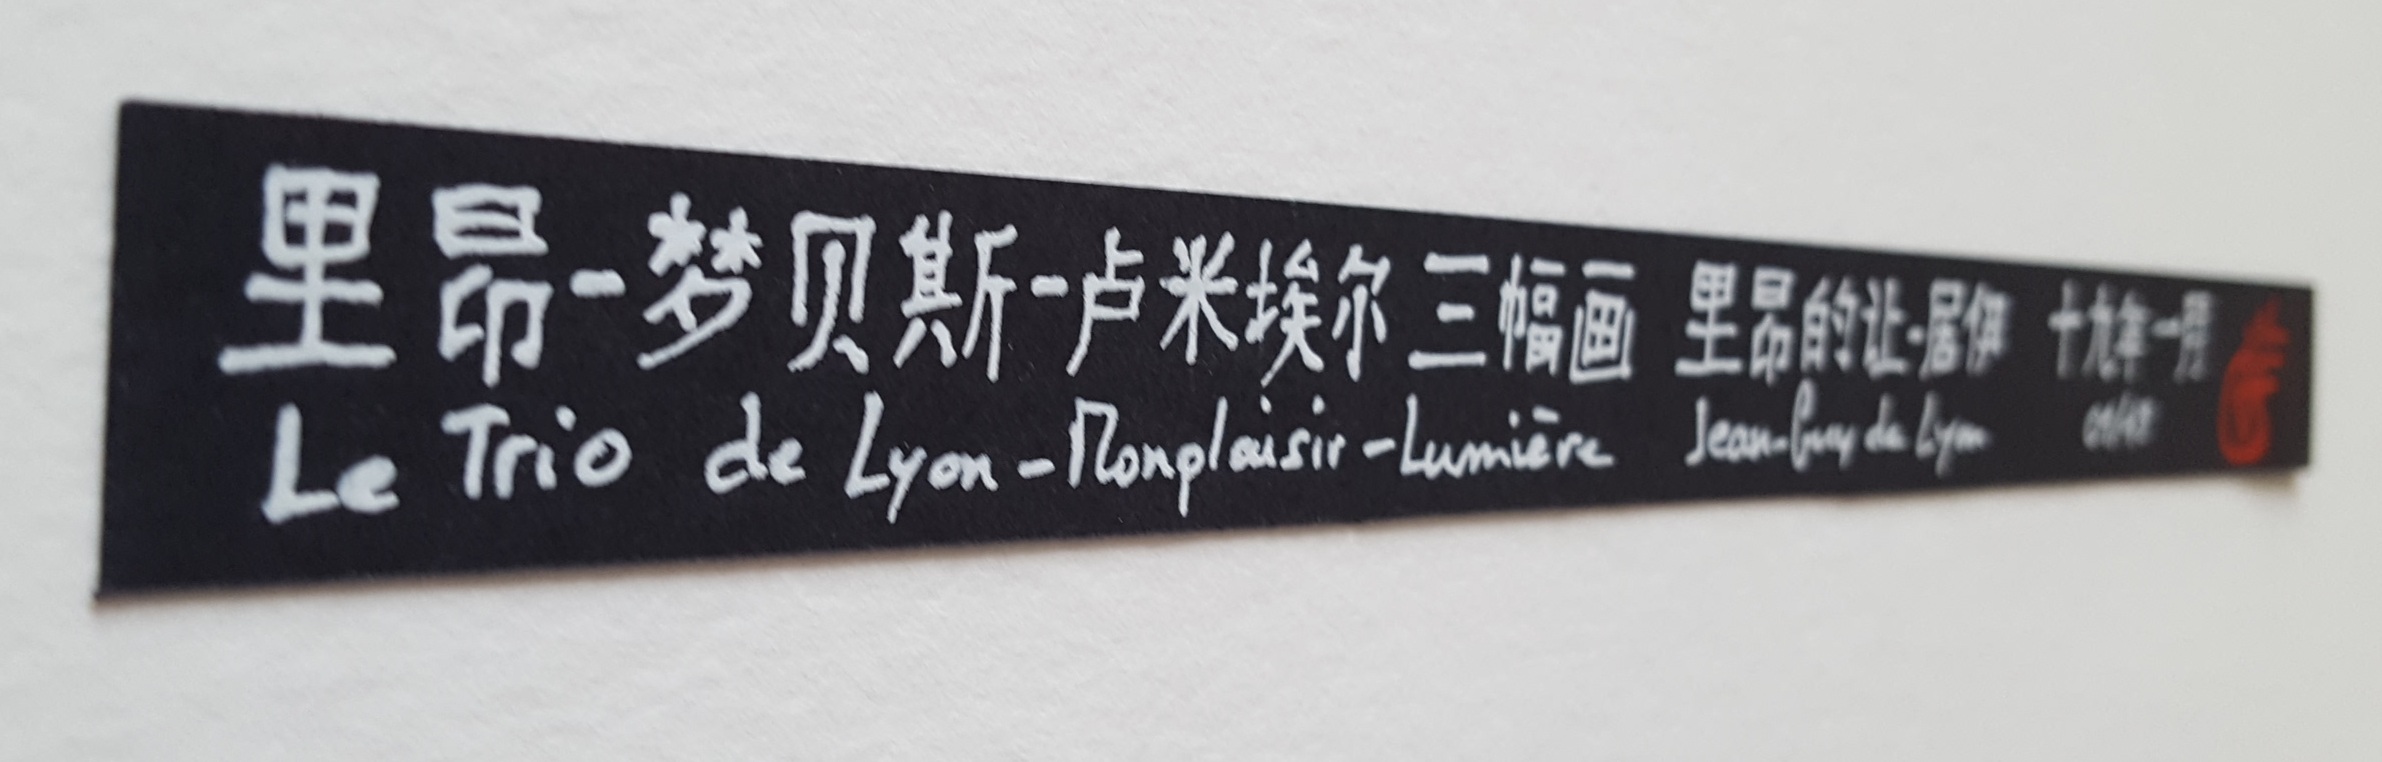 里昂-梦贝斯-卢米埃尔三幅画 里昂的让·居伊 十九年一月
Le Trio de Lyon-Monplaisir-Lumière Jean-Guy de Lyon